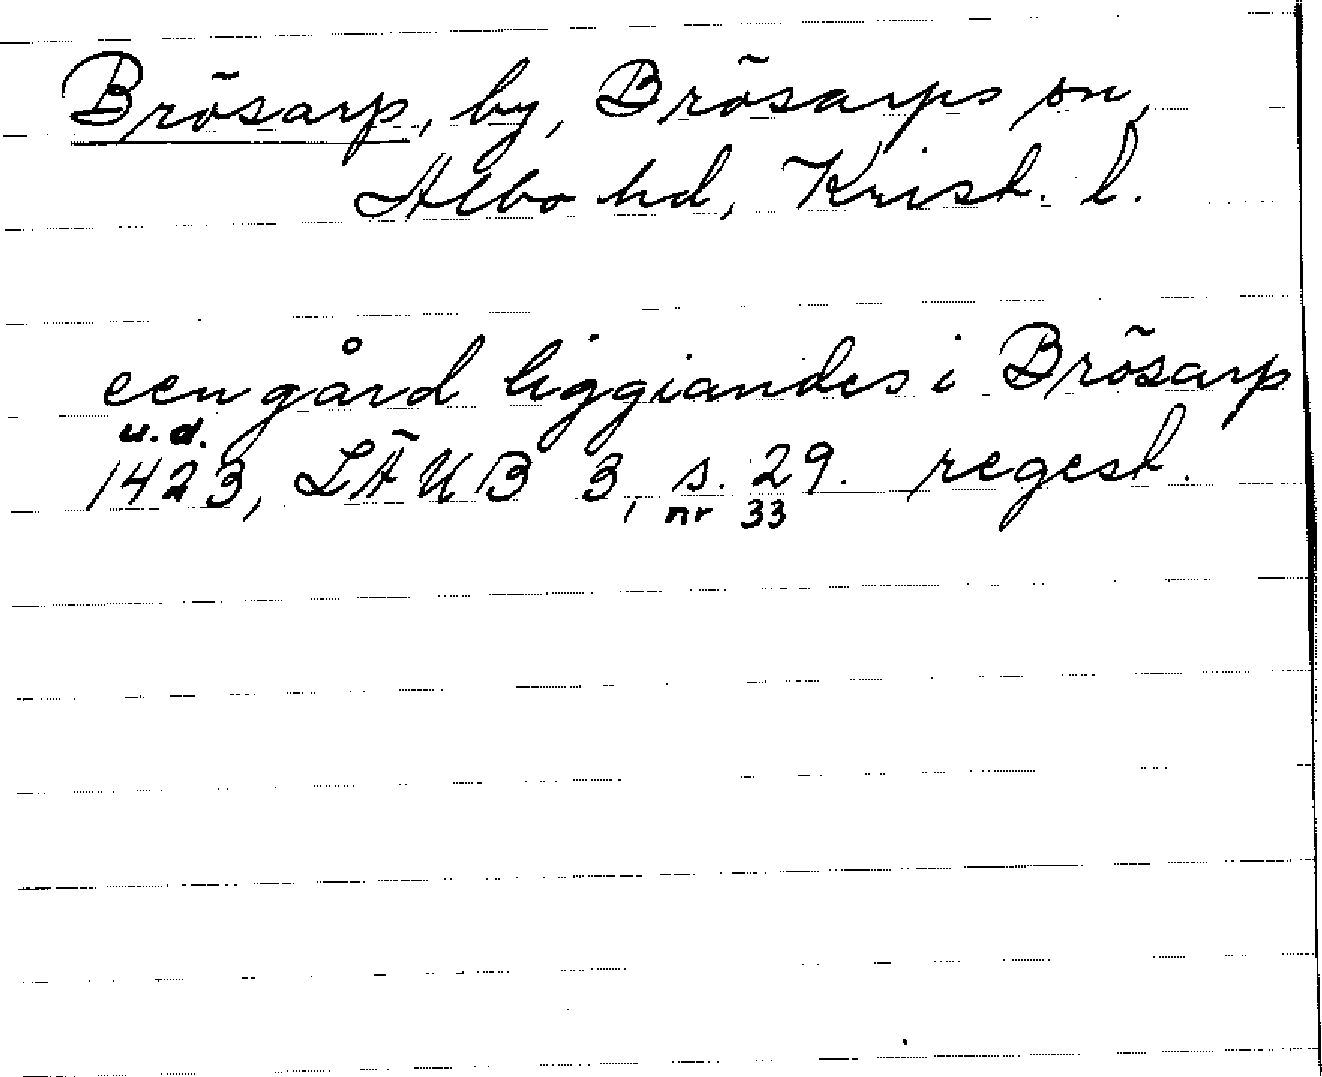 Brösarp, by, Brösarps sn,
Albo hd, Krist. l.
een gård liggiandes i Brösarp
u. d.
1423, LÄUB 3, s. 29. regest.
nr 33